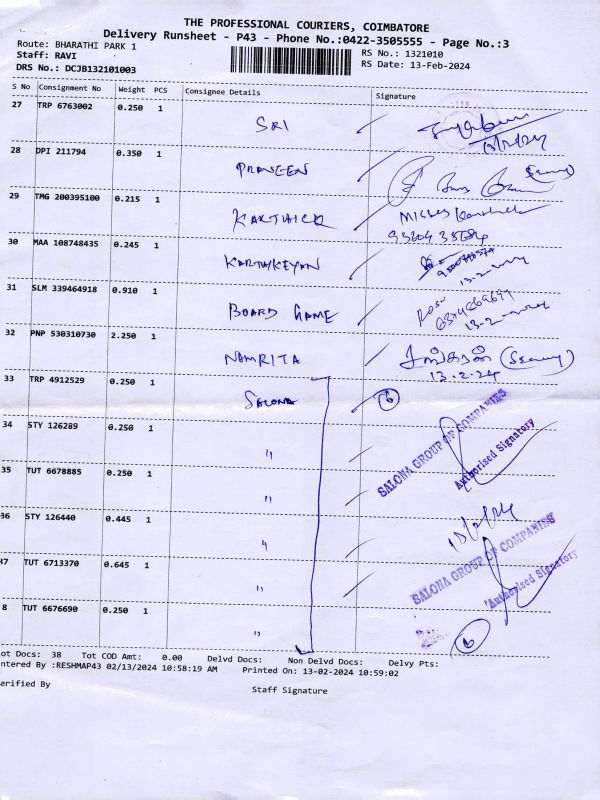 THE PROFESSIONAL COURIERS, COIMBATORE
Delivery Runsheet - P43 - Phone No.:0422-3505555 - Page No.:3
Route: BHARATHI PARK 1 RS No.: 1321010
Staff: RAVI RS Date: 13-Feb-2024
DRS No.: DCJB132101003
S No Consignment No Weight PCS Consignee Details Signature
27 TRP 6763002 0.250 1 SRI
28 DPI 211794 0.350 1 PRAVEEN
29 TMG 200395100 0.215 1 KARTHICK
30 MAA 108748435 0.245 1 KARTHIKEYAN
31 SLM 339464918 0.910 1 BOARD GAME
32 PNP 530310730 2.250 1 NAMRITA
13.2.24
33 TRP 4912529 0.250 1 SALONA 6
34 STY 126289 0.250 1 "
SALONA GROUP OF COMPANIES
Authorised Signatory
35 TUT 6678885 0.250 1 "
36 STY 126440 0.445 1 "
37 TUT 6713370 0.645 1 "
SALONA GROUP OF COMPANIES
Authorised Signatory
8 TUT 6676690 0.250 1 "
6
ot Docs: 38 Tot COD Amt: 0.00 Delvd Docs: Non Delvd Docs: Delvy Pts:
ntered By :RESHMAP43 02/13/2024 10:58:19 AM Printed On: 13-02-2024 10:59:02
erified By Staff Signature